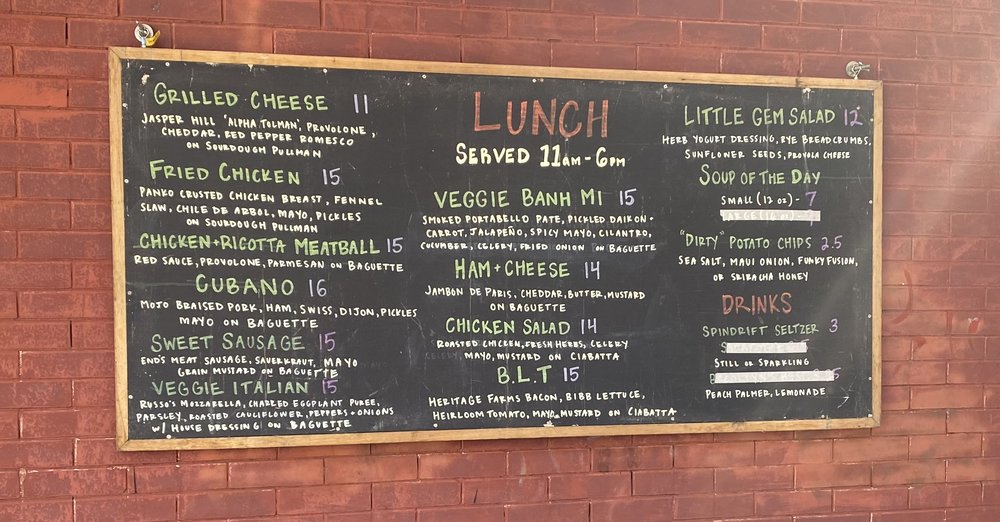 GRILLED CHEESE 11
JASPER HILL 'ALPHA TOLMAN', PROVOLONE,
CHEDDAR, RED PEPPER ROMESCO
ON SOURDOUGH PULLMAN
FRIED CHICKEN 15
PANKO CRUSTED CHICKEN BREAST, FENNEL
SLAW, CHILE DE ARBOL, MAYO, PICKLES
ON SOURDOUGH PULLMAN
CHICKEN+RICOTTA MEATBALL 15
RED SAUCE, PROVOLONE, PARMESAN ON BAGUETTE
CUBANO 16
MOJO BRAISED PORK, HAM, SWISS, DIJON, PICKLES
MAYO ON BAGUETTE
SWEET SAUSAGE 15
END'S MEAT SAUSAGE, SAUERKRAUT, MAYO
GRAIN MUSTARD ON BAGUETTE
VEGGIE ITALIAN 15
RUSSO'S MOZZARELLA, CHARRED EGGPLANT PUREE,
PARSLEY, ROASTED CAULIFLOWER, PEPPERS+ONIONS
W/ HOUSE DRESSING ON BAGUETTE
LUNCH
SERVED 11AM-6PM
VEGGIE BANH MI 15
SMOKED PORTABELLO PATE, PICKLED DAIKON+
CARROT, JALAPEÑO, SPICY MAYO, CILANTRO,
CUCUMBER, CELERY, FRIED ONION ON BAGUETTE
HAM+CHEESE 14
JAMBON DE PARIS, CHEDDAR, BUTTER, MUSTARD
ON BAGUETTE
CHICKEN SALAD 14
ROASTED CHICKEN, FRESH HERBS, CELERY
CELERY, MAYO, MUSTARD ON CIABATTA
B.L.T 15
HERITAGE FARMS BACON, BIBB LETTUCE,
HEIRLOOM TOMATO, MAYO, MUSTARD ON CIABATTA
LITTLE GEM SALAD 12
HERB YOGURT DRESSING, RYE BREADCRUMBS,
SUNFLOWER SEEDS, PROVOLA CHEESE
SOUP OF THE DAY
SMALL (12 OZ) - 7
"DIRTY" POTATO CHIPS 2.5
SEA SALT, MAUI ONION, FUNKY FUSION,
OR SRIRACHA HONEY
DRINKS
SPINDRIFT SELTZER 3
STILL OR SPARKLING
PEACH PALMER, LEMONADE